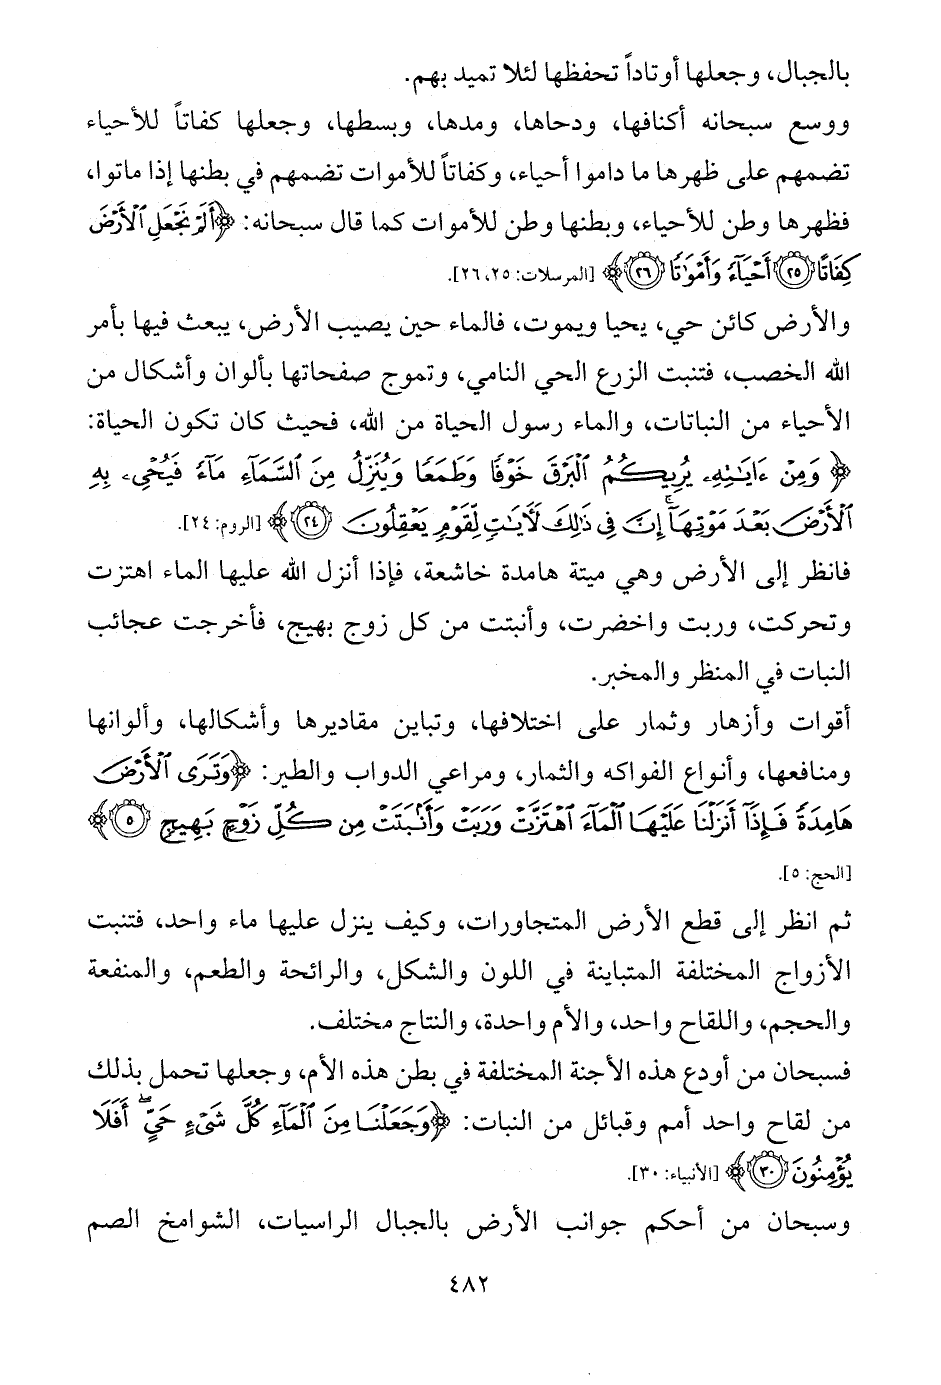 بالجبال، وجعلها أوتاداً تحفظها لئلا تميد بهم.
ووسع سبحانه أكنافها، ودحاها، ومدها، وبسطها، وجعلها كفاتاً للأحياء
تضمهم على ظهرها ما داموا أحياء، وكفاتاً للأموات تضمهم في بطنها إذا ماتوا،
فظهرها وطن للأحياء، وبطنها وطن للأموات كما قال سبحانه: ﴿أَلَمْ نَجْعَلِ ٱلْأَرْضَ
كِفَاتًا ٢٥ أَحْيَآءً وَأَمْوَٰتًا ٢٦﴾ [المرسلات: ٢٥، ٢٦].
والأرض كائن حي، يحيا ويموت، فالماء حين يصيب الأرض، يبعث فيها بأمر
الله الخصب، فتنبت الزرع الحي النامي، وتموج صفحاتها بألوان وأشكال من
الأحياء من النباتات، والماء رسول الحياة من الله، فحيث كان تكون الحياة:
﴿وَمِنْ ءَايَٰتِهِۦ يُرِيكُمُ ٱلْبَرْقَ خَوْفًا وَطَمَعًا وَيُنَزِّلُ مِنَ ٱلسَّمَآءِ مَآءً فَيُحْيِۦ بِهِ
ٱلْأَرْضَ بَعْدَ مَوْتِهَآ ۚ إِنَّ فِى ذَٰلِكَ لَءَايَٰتٍ لِّقَوْمٍ يَعْقِلُونَ ٢٤﴾ [الروم: ٢٤].
فانظر إلى الأرض وهي ميتة هامدة خاشعة، فإذا أنزل الله عليها الماء اهتزت
وتحركت، وربت واخضرت، وأنبتت من كل زوج بهيج، فأخرجت عجائب
النبات في المنظر والمخبر.
أقوات وأزهار وثمار على اختلافها، وتباين مقاديرها وأشكالها، وألوانها
ومنافعها، وأنواع الفواكه والثمار، ومراعي الدواب والطير: ﴿وَتَرَى ٱلْأَرْضَ
هَامِدَةً فَإِذَآ أَنزَلْنَا عَلَيْهَا ٱلْمَآءَ ٱهْتَزَّتْ وَرَبَتْ وَأَنۢبَتَتْ مِن كُلِّ زَوْجٍۭ بَهِيجٍ ٥﴾
[الحج: ٥].
ثم انظر إلى قطع الأرض المتجاورات، وكيف ينزل عليها ماء واحد، فتنبت
الأزواج المختلفة المتباينة في اللون والشكل، والرائحة والطعم، والمنفعة
والحجم، واللقاح واحد، والأم واحدة، والنتاج مختلف.
فسبحان من أودع هذه الأجنة المختلفة في بطن هذه الأم، وجعلها تحمل بذلك
من لقاح واحد أمم وقبائل من النبات: ﴿وَجَعَلْنَا مِنَ ٱلْمَآءِ كُلَّ شَىْءٍ حَىٍّ ۖ أَفَلَا
يُؤْمِنُونَ ٣٠﴾ [الأنبياء: ٣٠].
وسبحان من أحكم جوانب الأرض بالجبال الراسيات، الشوامخ الصم
٤٨٢